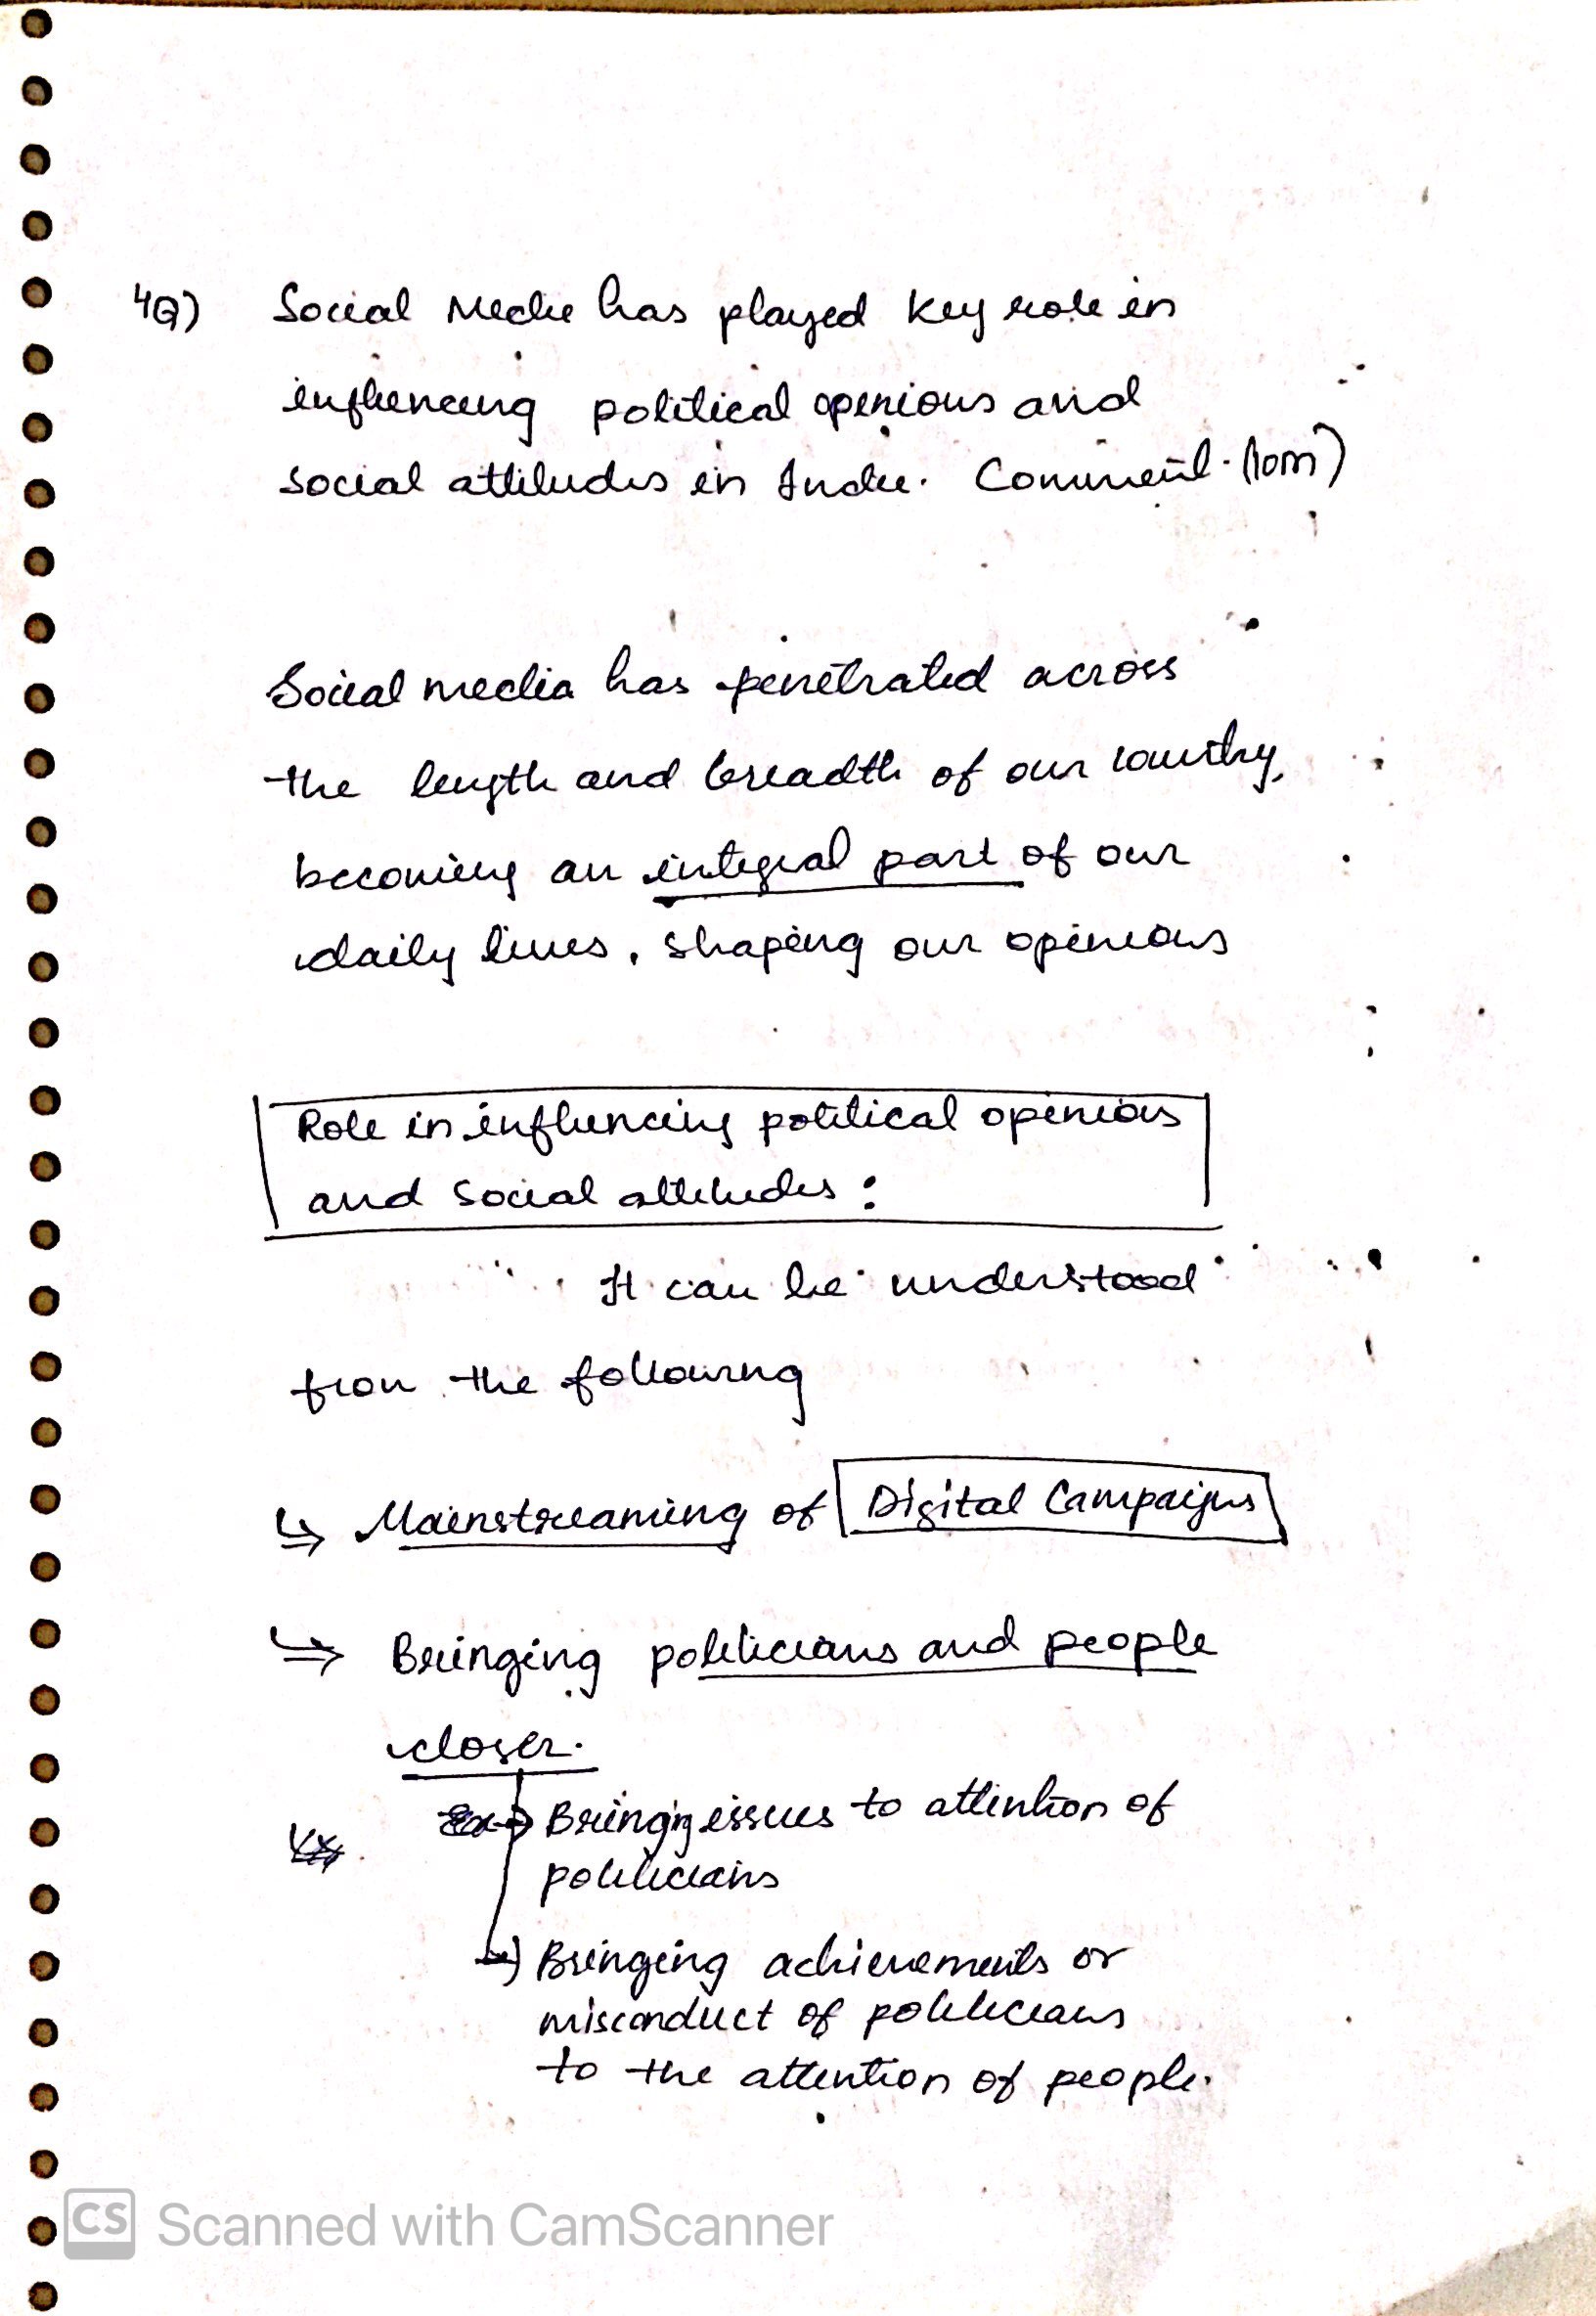 4Q) Social Media has played key role in
influencing political openions and
social attitudes in India. Comment. (10m)
Social media has penetrated across
the length and breadth of our country,
becoming an integral part of our
daily lives, shaping our opinions
Role in influencing political opinions
and social attitudes :
It can be understood
from the following
↳ Mainstreaming of Digital Campaigns
↳ Bringing politicians and people
closer.
Ex → Bringing issues to attention of
politicians
→ Bringing achievements or
misconduct of politicians
to the attention of people.
CS Scanned with CamScanner